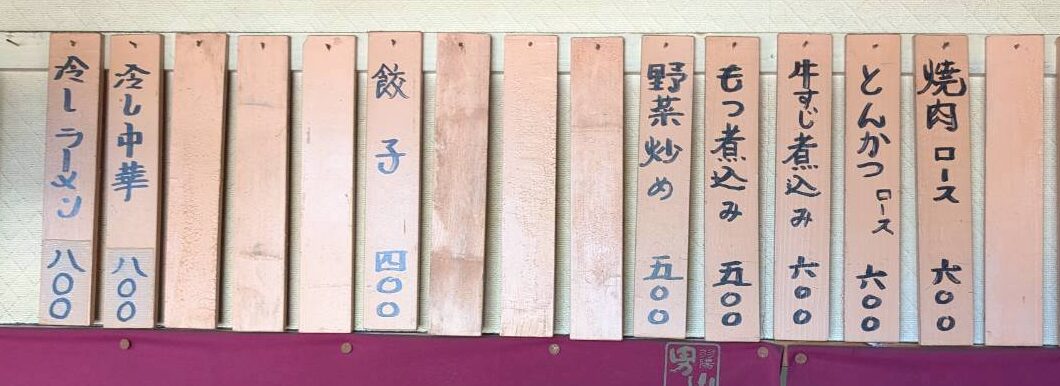 焼肉ロース 六〇〇
とんかつロース 六〇〇
牛すじ煮込み 六〇〇
もつ煮込み 五〇〇
野菜炒め 五〇〇
餃子 四〇〇
冷し中華 八〇〇
冷しラーメン 八〇〇
羽陽
男山